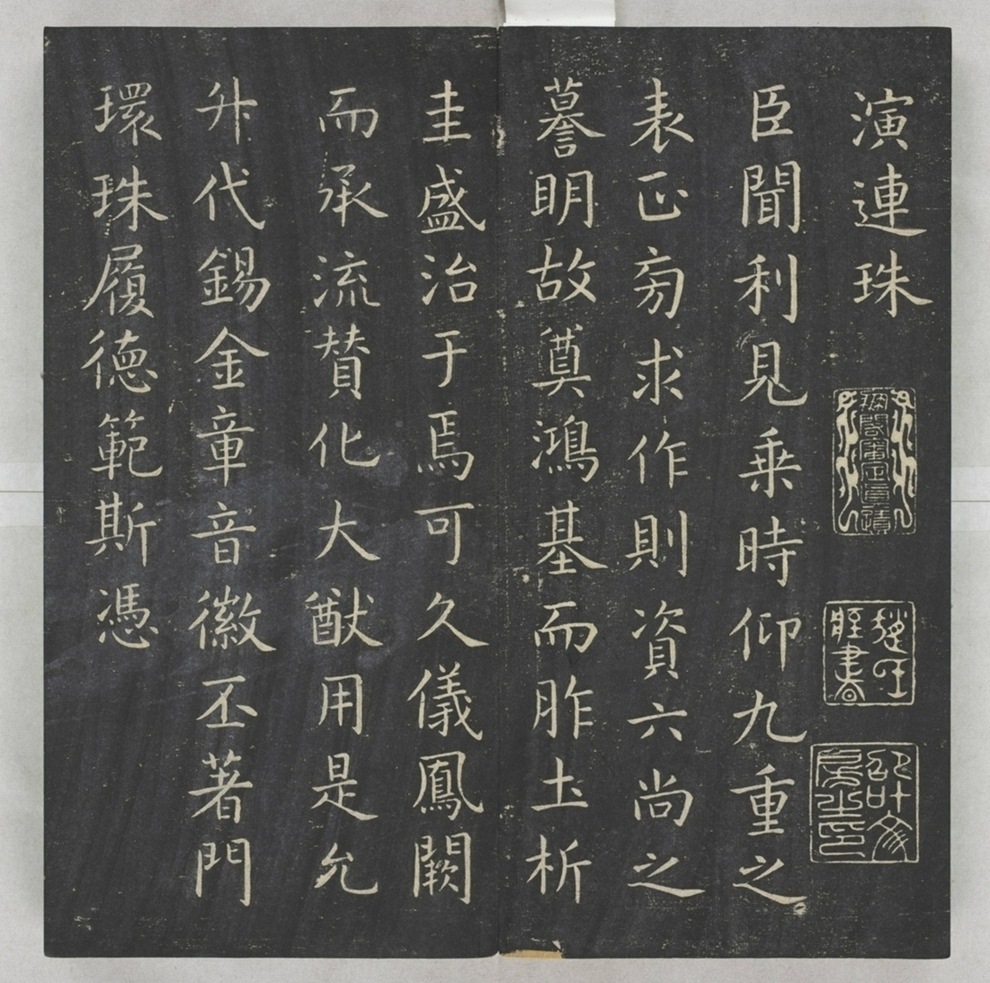 演連珠
臣聞利見乗時仰九重之
表正旁求作則資六尚之
謩明故奠鴻基而胙土析
圭盛治于焉可久儀鳳闕
而承流賛化大猷用是允
升代錫金章音徽丕著門
環珠履德範斯憑